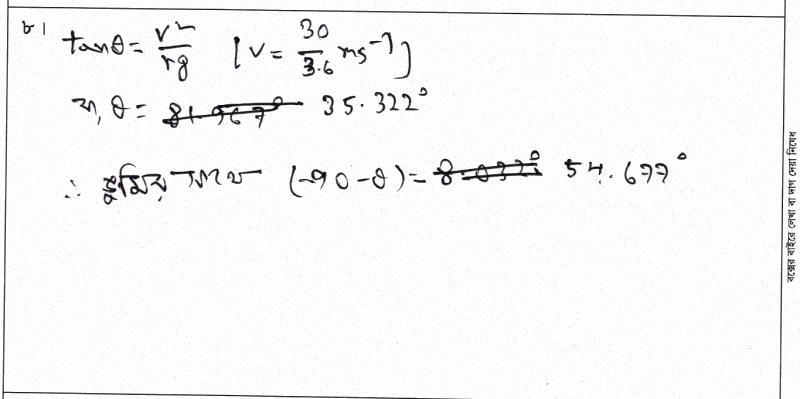 ৮।
tanθ = v²/rg [v = 30/3.6 ms⁻¹]
বা, θ = 35.322°
∴ ভূমির সাথে (90 - θ) = 54.677°
বক্সের বাইরে লেখা বা দাগ দেয়া নিষেধ